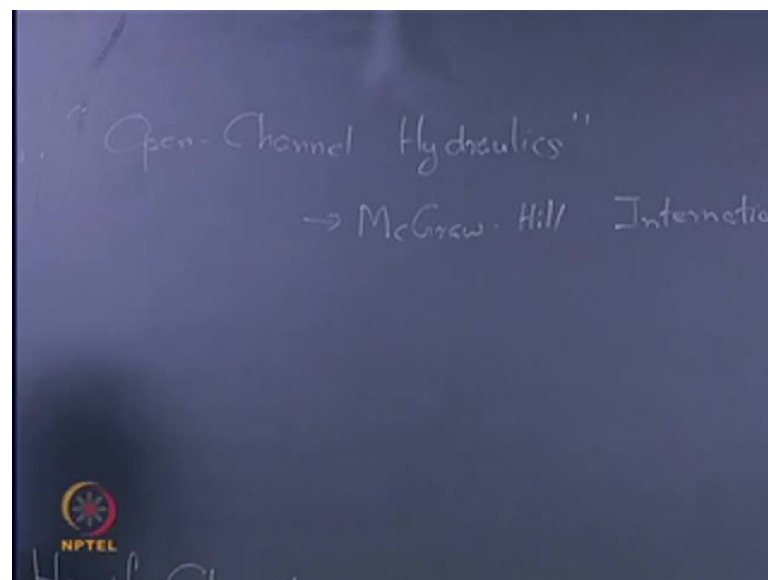 "Open-Channel Hydraulics"
→ McGraw-Hill Internatio
NPTEL